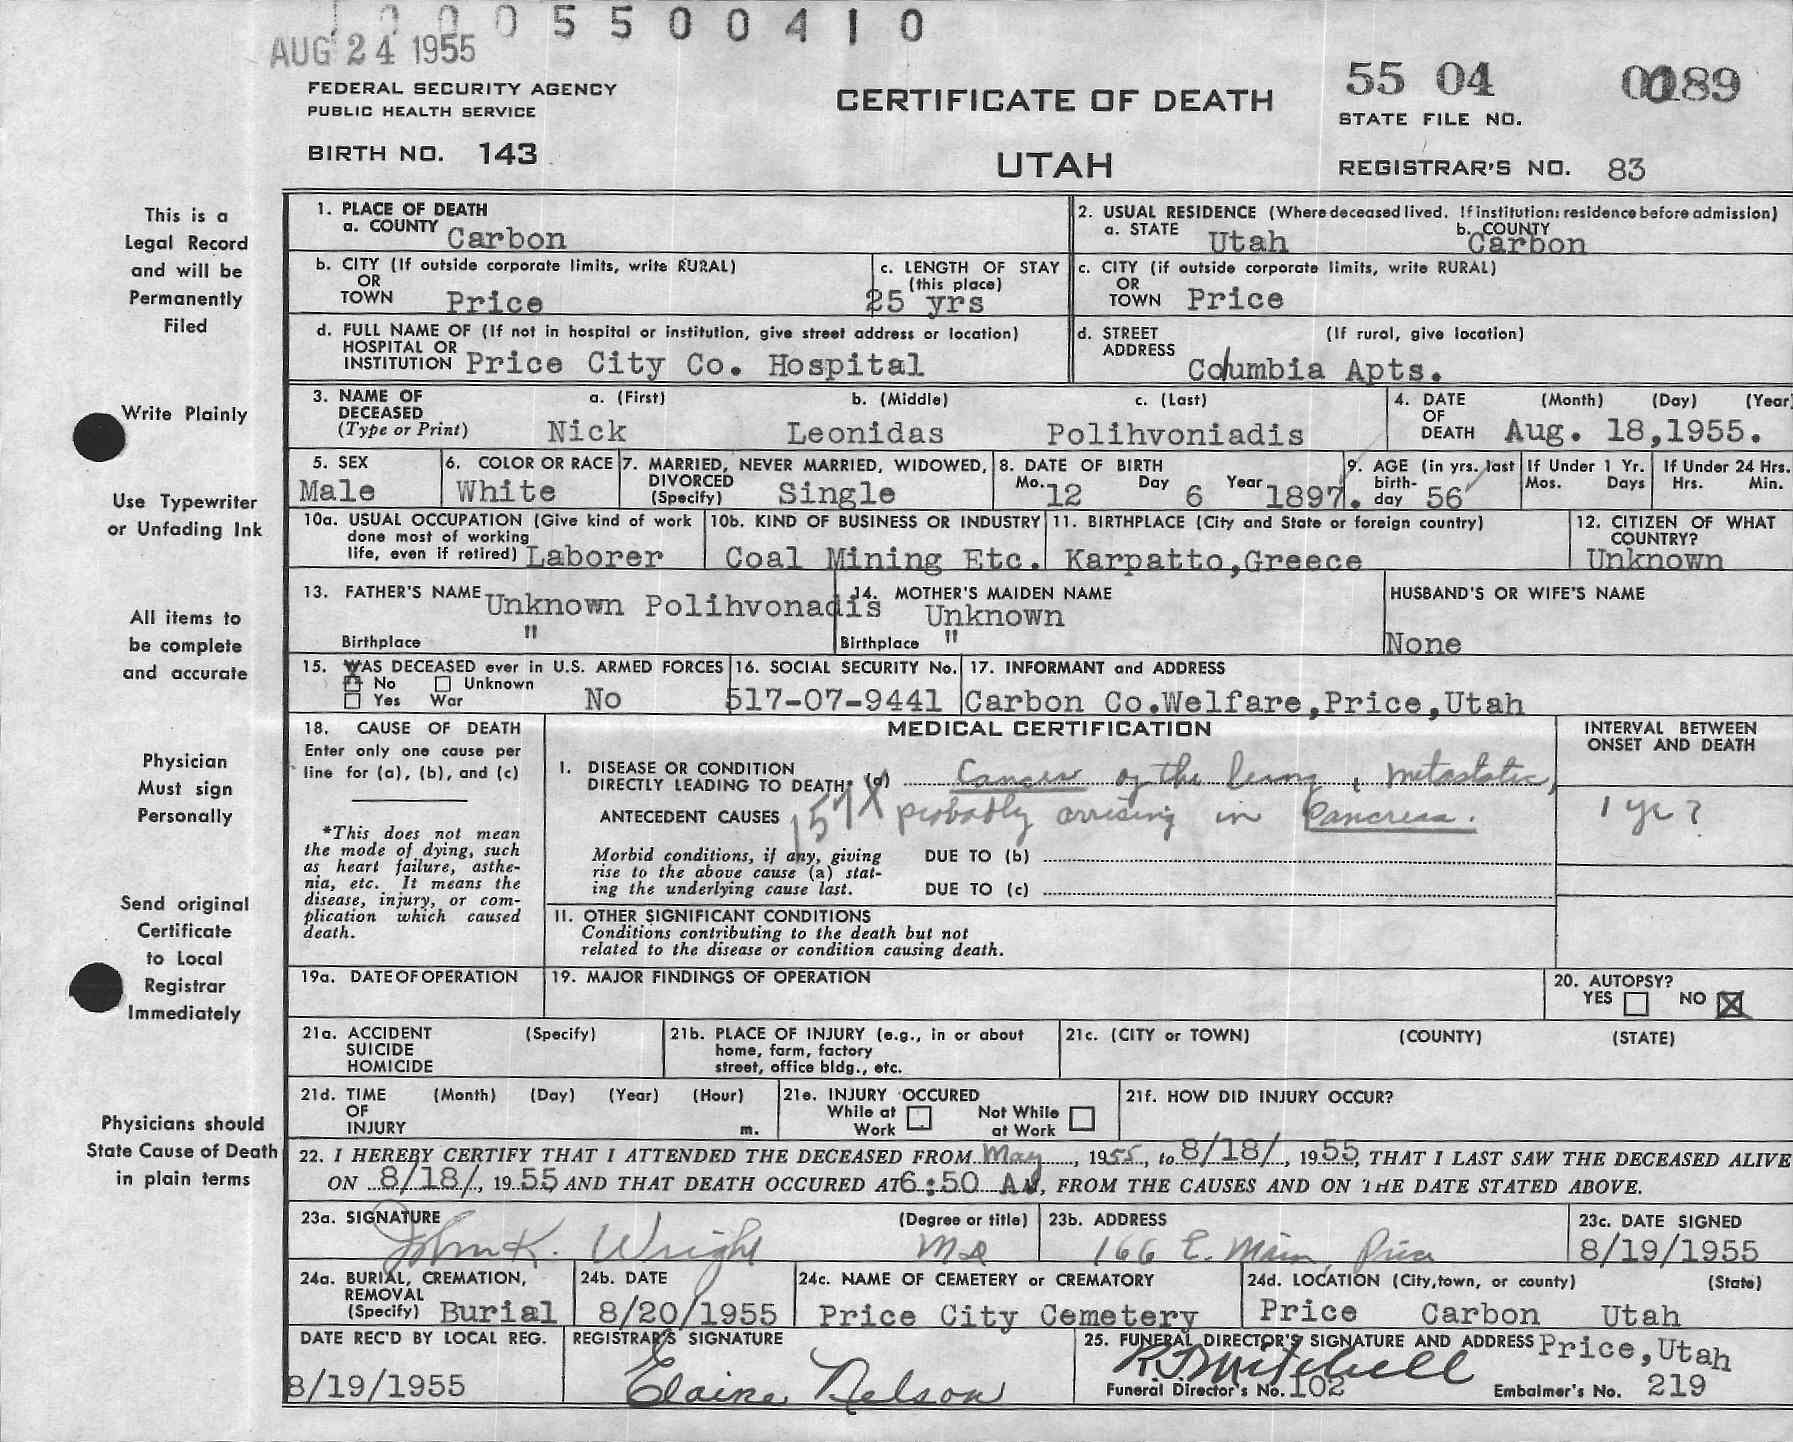 0 0 5 5 0 0 4 1 0
AUG 24 1955
FEDERAL SECURITY AGENCY
PUBLIC HEALTH SERVICE
BIRTH NO. 143
CERTIFICATE OF DEATH
UTAH
55 04 0189
STATE FILE NO.
REGISTRAR'S NO. 83
This is a
Legal Record
and will be
Permanently
Filed
Write Plainly
Use Typewriter
or Unfading Ink
All items to
be complete
and accurate
Physician
Must sign
Personally
Send original
Certificate
to Local
Registrar
Immediately
Physicians should
State Cause of Death
in plain terms
1. PLACE OF DEATH
a. COUNTY Carbon
2. USUAL RESIDENCE (Where deceased lived. If institution: residence before admission)
a. STATE Utah b. COUNTY Carbon
b. CITY (If outside corporate limits, write RURAL)
OR
TOWN Price
c. LENGTH OF STAY
(this place)
25 yrs
c. CITY (if outside corporate limits, write RURAL)
OR
TOWN Price
d. FULL NAME OF (If not in hospital or institution, give street address or location)
HOSPITAL OR
INSTITUTION Price City Co. Hospital
d. STREET (If rural, give location)
ADDRESS
Columbia Apts.
3. NAME OF a. (First) b. (Middle) c. (Last)
DECEASED
(Type or Print) Nick Leonidas Polihvoniadis
4. DATE (Month) (Day) (Year)
OF
DEATH Aug. 18,1955.
5. SEX
Male
6. COLOR OR RACE
White
7. MARRIED, NEVER MARRIED, WIDOWED,
DIVORCED
(Specify) Single
8. DATE OF BIRTH
Mo. 12 Day 6 Year 1897.
9. AGE (in yrs. last
birth-
day 56
If Under 1 Yr.
Mos. Days
If Under 24 Hrs.
Hrs. Min.
10a. USUAL OCCUPATION (Give kind of work
done most of working
life, even if retired) Laborer
10b. KIND OF BUSINESS OR INDUSTRY
Coal Mining Etc.
11. BIRTHPLACE (City and State or foreign country)
Karpatto,Greece
12. CITIZEN OF WHAT
COUNTRY?
Unknown
13. FATHER'S NAME Unknown Polihvonadis
Birthplace "
14. MOTHER'S MAIDEN NAME
Unknown
Birthplace "
HUSBAND'S OR WIFE'S NAME
None
15. WAS DECEASED ever in U.S. ARMED FORCES
X No Unknown
Yes War No
16. SOCIAL SECURITY No.
517-07-9441
17. INFORMANT and ADDRESS
Carbon Co.Welfare,Price,Utah
18. CAUSE OF DEATH
Enter only one cause per
line for (a), (b), and (c)
*This does not mean
the mode of dying, such
as heart failure, asthe-
nia, etc. It means the
disease, injury, or com-
plication which caused
death.
MEDICAL CERTIFICATION
INTERVAL BETWEEN
ONSET AND DEATH
I. DISEASE OR CONDITION
DIRECTLY LEADING TO DEATH: (a) Cancer of the , metastatic,
ANTECEDENT CAUSES 157X probably arising in Pancreas.
1 yr?
Morbid conditions, if any, giving
rise to the above cause (a) stat-
ing the underlying cause last.
DUE TO (b)
DUE TO (c)
II. OTHER SIGNIFICANT CONDITIONS
Conditions contributing to the death but not
related to the disease or condition causing death.
19a. DATE OF OPERATION
19. MAJOR FINDINGS OF OPERATION
20. AUTOPSY?
YES NO X
21a. ACCIDENT (Specify)
SUICIDE
HOMICIDE
21b. PLACE OF INJURY (e.g., in or about
home, farm, factory
street, office bldg., etc.
21c. (CITY or TOWN) (COUNTY) (STATE)
21d. TIME (Month) (Day) (Year) (Hour)
OF
INJURY m.
21e. INJURY OCCURED
While at Work Not While at Work
21f. HOW DID INJURY OCCUR?
22. I HEREBY CERTIFY THAT I ATTENDED THE DECEASED FROM May, 1955, to 8/18/, 1955, THAT I LAST SAW THE DECEASED ALIVE
ON 8/18/, 1955 AND THAT DEATH OCCURED AT 6:50 AM, FROM THE CAUSES AND ON THE DATE STATED ABOVE.
23a. SIGNATURE (Degree or title)
John K. Wright MD
23b. ADDRESS
166 E. Main, Price
23c. DATE SIGNED
8/19/1955
24a. BURIAL, CREMATION,
REMOVAL
(Specify) Burial
24b. DATE
8/20/1955
24c. NAME OF CEMETERY or CREMATORY
Price City Cemetery
24d. LOCATION (City,town, or county) (State)
Price Carbon Utah
DATE REC'D BY LOCAL REG.
8/19/1955
REGISTRAR'S SIGNATURE
Elaine Nelson
25. FUNERAL DIRECTOR'S SIGNATURE AND ADDRESS Price,Utah
R J Mitchell
Funeral Director's No. 102 Embalmer's No. 219